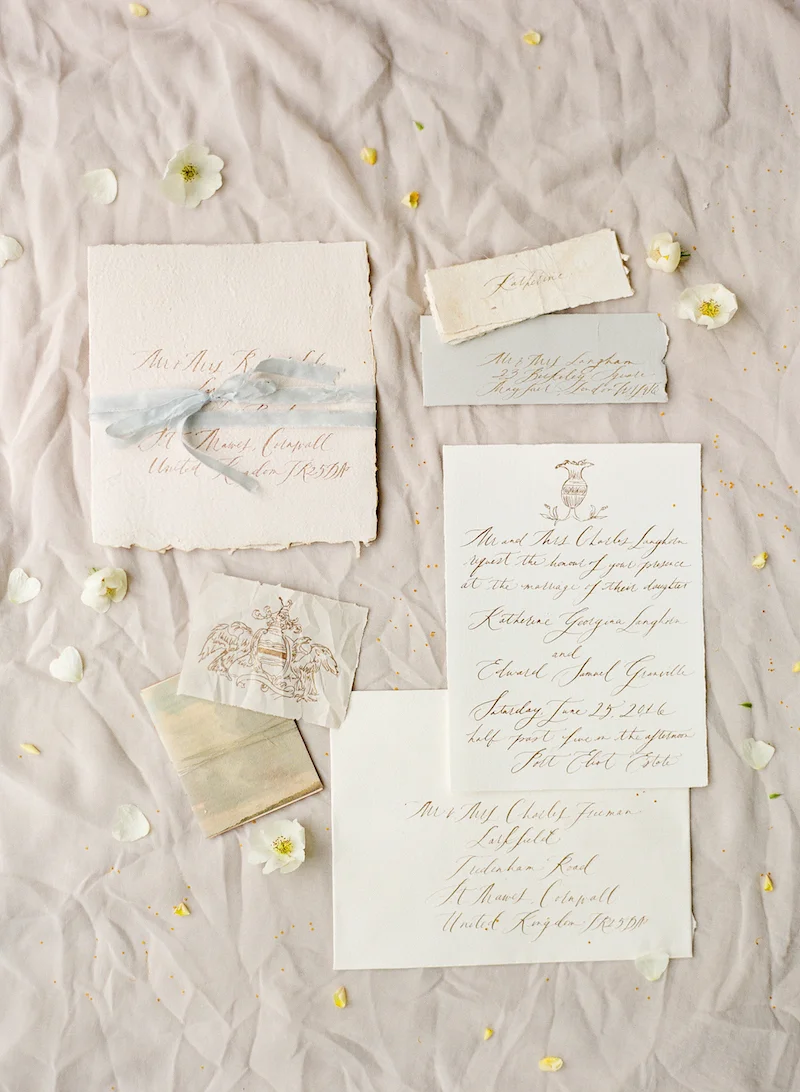 Mr & Mrs
St Mawes, Cornwall
United Kingdom TR25DA
Katherine
Mr & Mrs Langham
22 Berkeley Square
Mayfair London
Mr and Mrs Charles Langhorn
request the honour of your presence
at the marriage of their daughter
Katherine Georgina Langhorn
and
Edward Samuel Granville
Saturday, June 25, 2016
half past five in the afternoon
Port Eliot Estate
Mr & Mrs Charles Freeman
Larkfield
Tredenham Road
St Mawes, Cornwall
United Kingdom TR25DA